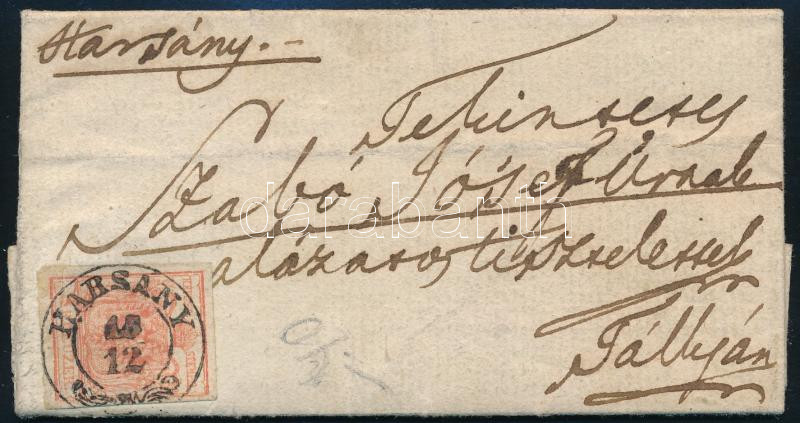 Harsány.-
Tekintetes
Szabó Jósef Úrnak
alázatos tisztelettel
Tállyán
HARSANY
12
darabanth